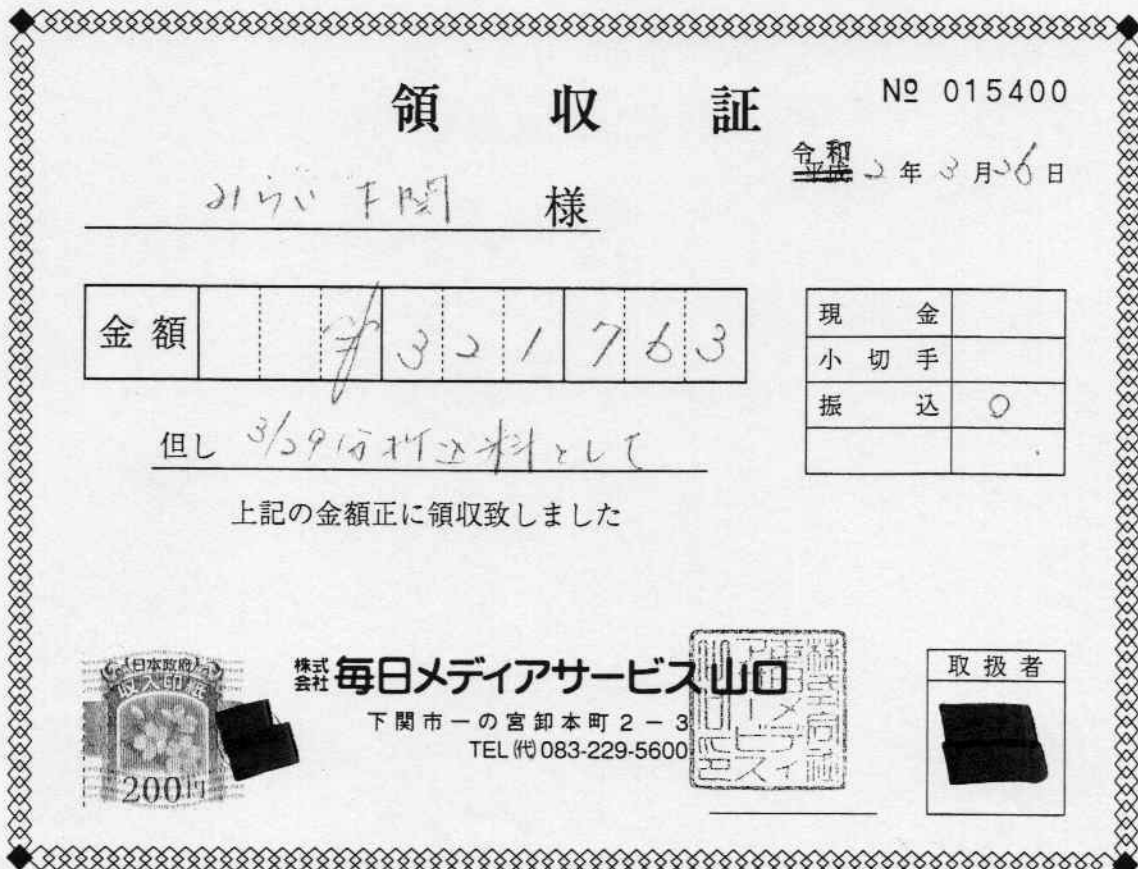 領収証
№ 015400
令和
平成 2年 3月26日
みらい下関 様
金額 ¥321763
現金
小切手
振込 ○
但し 3/29分折込料として
上記の金額正に領収致しました
日本政府
収入印紙
200円
株式会社 毎日メディアサービス山口
下関市一の宮卸本町2-3
TEL(代)083-229-5600
取扱者